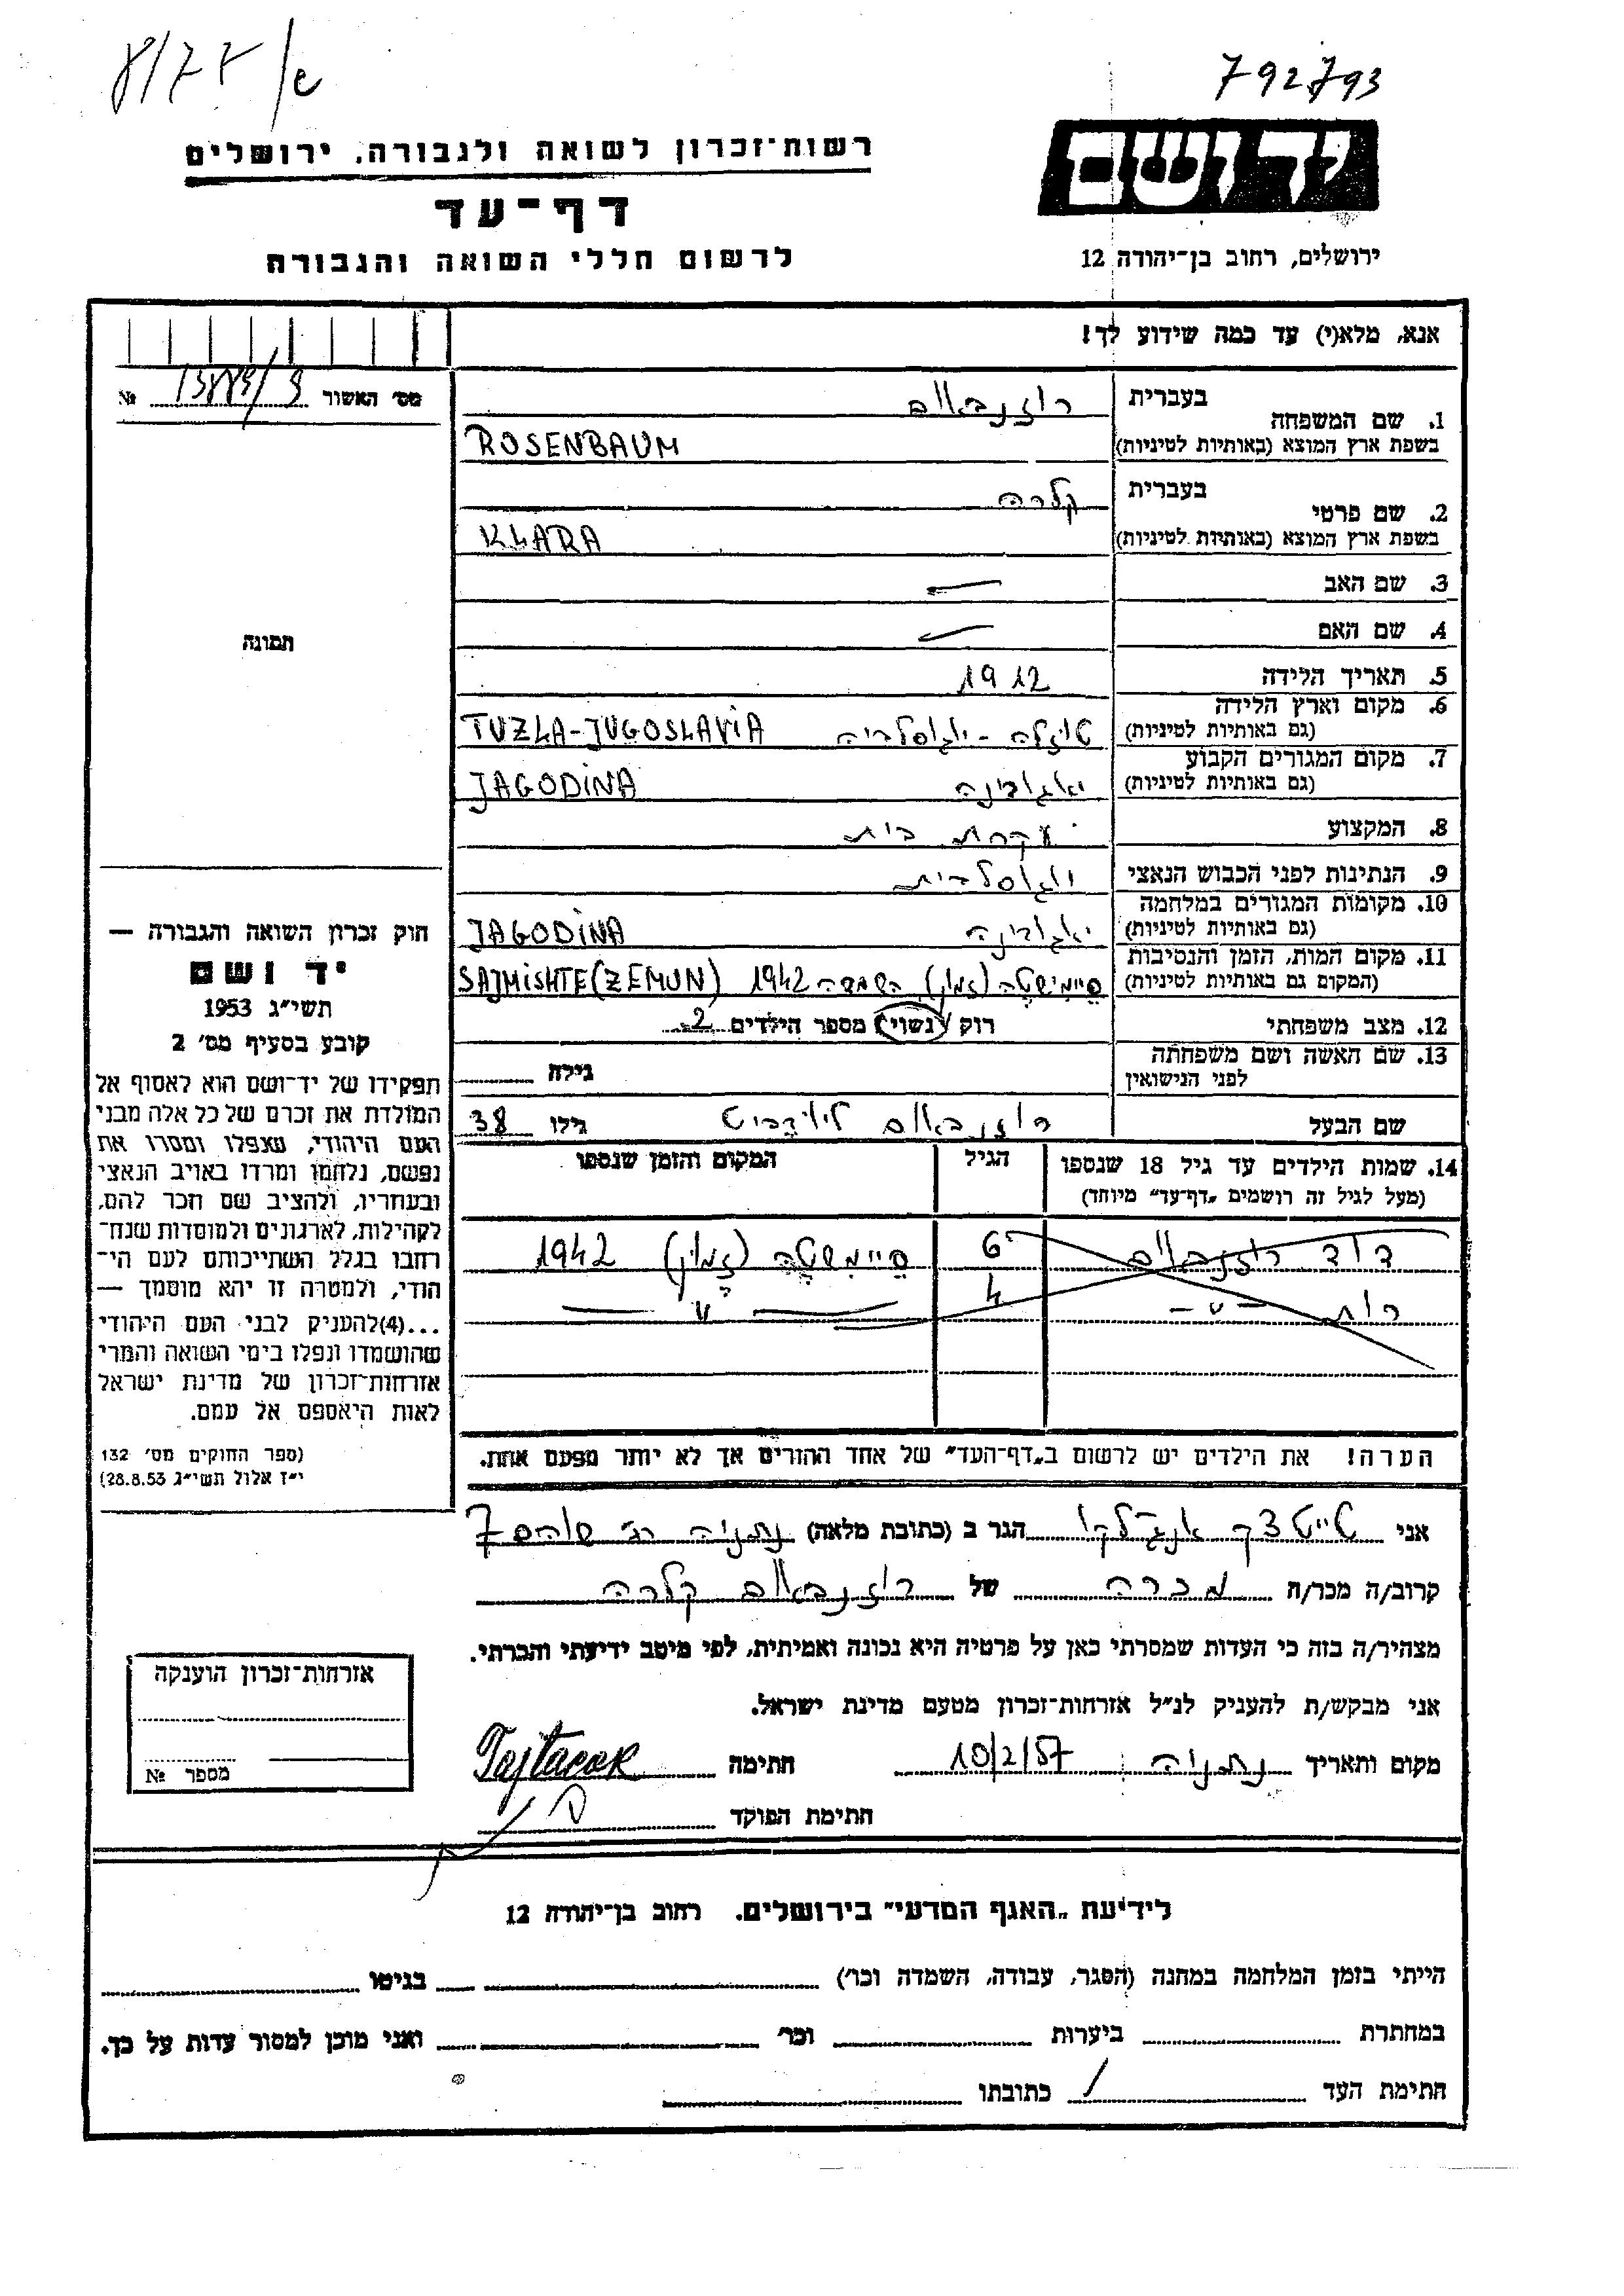 792793
רשות־זכרון לשואה ולגבורה, ירושלים
יד ושם
דף־עד
לרשום חללי השואה והגבורה
ירושלים, רחוב בן־יהודה 12
אנא, מלא(י) עד כמה שידוע לך!
מס' האשור №
1. שם המשפחה
בעברית רוזנבאום
בשפת ארץ המוצא (באותיות לטיניות) ROSENBAUM
2. שם פרטי
בעברית קלרה
בשפת ארץ המוצא (באותיות לטיניות) KLARA
3. שם האב —
4. שם האם —
5. תאריך הלידה 1912
6. מקום וארץ הלידה
(גם באותיות לטיניות) טוזלה - יוגוסלביה TUZLA-JUGOSLAVIA
7. מקום המגורים הקבוע
(גם באותיות לטיניות) יאגודינה JAGODINA
8. המקצוע עקרת בית
9. הנתינות לפני הכבוש הנאצי יוגוסלבית
10. מקומות המגורים במלחמה
(גם באותיות לטיניות) יאגודינה JAGODINA
11. מקום המות, הזמן והנסיבות
(המקום גם באותיות לטיניות) סיימישטה (זמון) השמדה 1942 SAJMISHTE (ZEMUN)
12. מצב משפחתי רוק/נשוי/ מספר הילדים 2
13. שם האשה ושם משפחתה
לפני הנישואין גילה
שם הבעל רוזנבאום גילו 38
14. שמות הילדים עד גיל 18 שנספו הגיל המקום והזמן שנספו
(מעל לגיל זה רושמים „דף־עד" מיוחד)
דוד רוזנבאום 6 סיימישטה (זמון) 1942
רות -"- 4 -"-
הערה! את הילדים יש לרשום ב„דף־העד" של אחד ההורים אך לא יותר מפעם אחת.
תמונה
חוק זכרון השואה והגבורה —
יד ושם
תשי"ג 1953
קובע בסעיף מס' 2
תפקידו של יד־ושם הוא לאסוף אל
המולדת את זכרם של כל אלה מבני
העם היהודי, שנפלו ומסרו את
נפשם, נלחמו ומרדו באויב הנאצי
ובעוזריו, ולהציב שם וזכר להם,
לקהילות, לארגונים ולמוסדות שנח־
רבו בגלל השתייכותם לעם הי־
הודי, ולמטרה זו יהא מוסמך —
...(4) להעניק לבני העם היהודי
שהושמדו ונפלו בימי השואה והמרי
אזרחות־זכרון של מדינת ישראל
לאות היאספם אל עמם.
(ספר החוקים מס' 132
י"ז אלול תשי"ג 28.8.53)
אני הגר ב (כתובת מלאה) נתניה רח' 7
קרוב/ה מכר/ה מכרה של רוזנבאום קלרה
מצהיר/ה בזה כי העדות שמסרתי כאן על פרטיה היא נכונה ואמיתית, לפי מיטב ידיעתי והכרתי.
אני מבקש/ת להעניק לנ"ל אזרחות־זכרון מטעם מדינת ישראל.
מקום ותאריך נתניה 10/2/57 חתימה
חתימת הפוקד
אזרחות־זכרון הוענקה
מספר №
לידיעת „האגף המדעי" בירושלים. רחוב בן־יהודה 12
הייתי בזמן המלחמה במחנה (הסגר, עבודה, השמדה וכו') בגיטו
במחתרת ביערות וכו' ואני מוכן למסור עדות על כך.
חתימת העד כתובתו